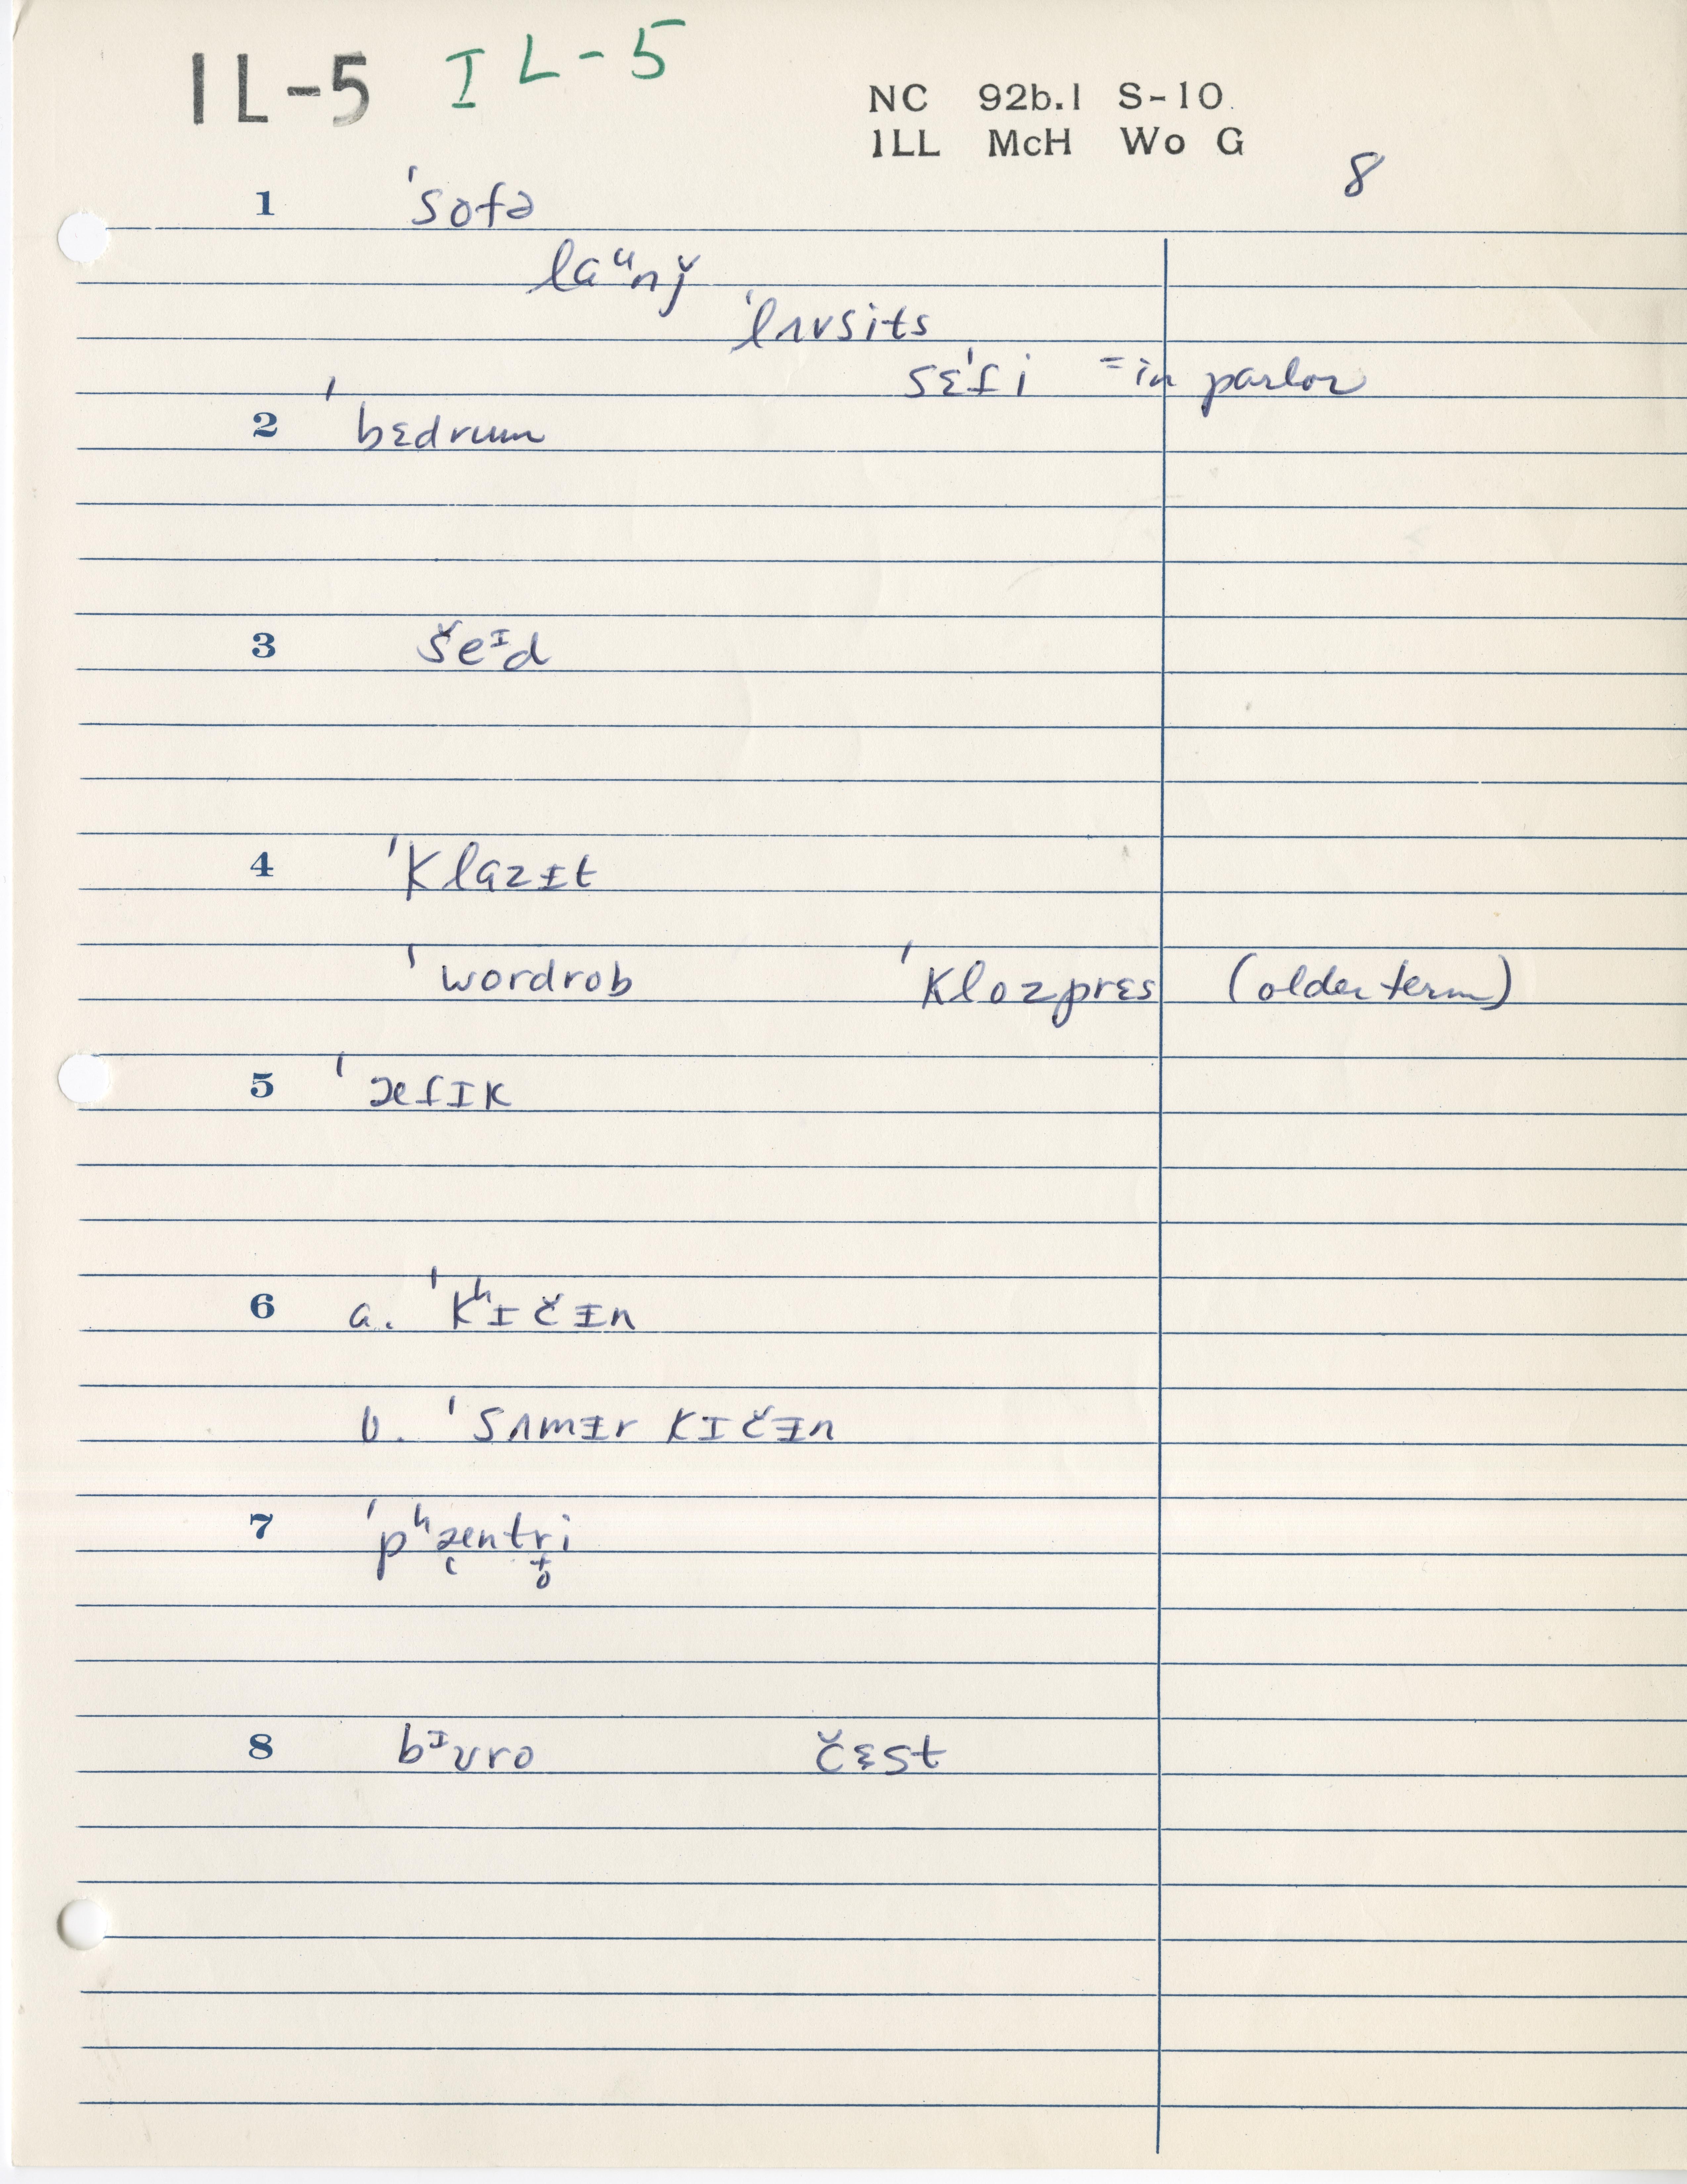 IL-5 IL-5
NC 92b.1 S-10.
1LL McH Wo G
8
1 ˈsofə
laᵘnǰ
ˈlʌvsits
sɛˈfi = in parlor
2 ˈbɛdrum
3 šeᶦd
4 ˈklɑzɨt
ˈwordrob ˈklozprɛs (older term)
5 ˈæfɪk
6 a. ˈkʰɪčɨn
b. ˈsʌmɨr kɪčɨn
7 ˈpʰæntri
8 bᶦuro čɛst